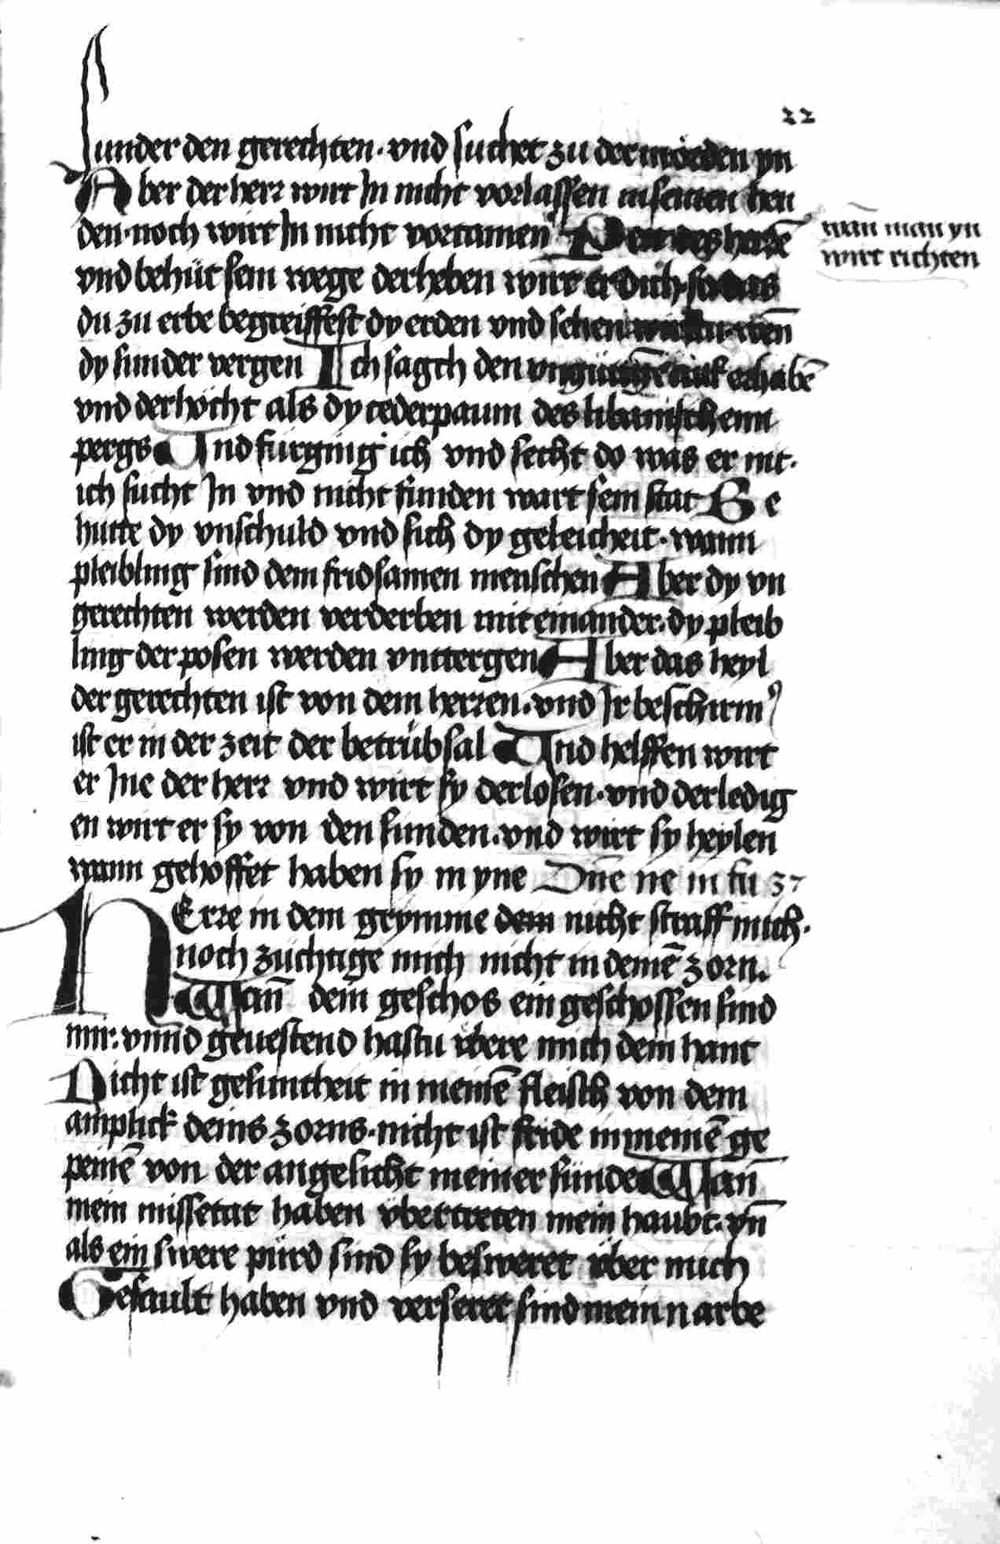 22
sunder den gerechten · vnd suchet zu dermörden yn
Aber der herr wirt In nicht vorlassen in seinen hen
den · noch wirt In nicht vortamen Peit des herrē
wañ man yn
wirt richten
vnd behüt sein wege derheben wirt er dich · so das
du zu erbe begreiffest dy erden vnd sehen wirstu · wen̄
dy sunder vergen Ich sagch den vngütigē erhabē
vnd derhöcht als dy cederpaum des libanischenn
pergs Vnd fürging ich vnd secht do was er nit ·
ich sucht In vnd nicht funden wart sein stat Be
hutte dy vnschuld vnd sich dy geleicheit · wann
pleibling sind dem fridsamen menschen Aber dy vn
gerechten werden verderben miteinander · dy pleib
ling der posen werden vnttergen Aber das heyl
der gerechten ist von dem herren · vnd Ir beschirm̉
ist er in der zeit der betrübsal Vnd helffen wirt
er Ine der herr vnd wirt sy derlosen · vnd derledig
en wirt er sy von den sunden · vnd wirt sy heylen
wann gehoffet haben sy in yne Dn̄e ne in fu 37
HErre in dem grymme dein nicht straff mich ·
noch züchtige mich nicht in deinē zorn .
Wan̄ dein geschos ein geschossen sind
mir · vnnd geuestend hastu vbere mich dein hant
Nicht ist gesuntheit in meinē fleisch von dem
amplick deins zorns · nicht ist fride in meinē ge
peinē von der angesicht meiner sünde Wan̄
mein missetat haben vbertreten mein haubt · yn̄
als ein swere pürd sind sy besweret über mich
Gefault haben vnd verseret sind mein narbe